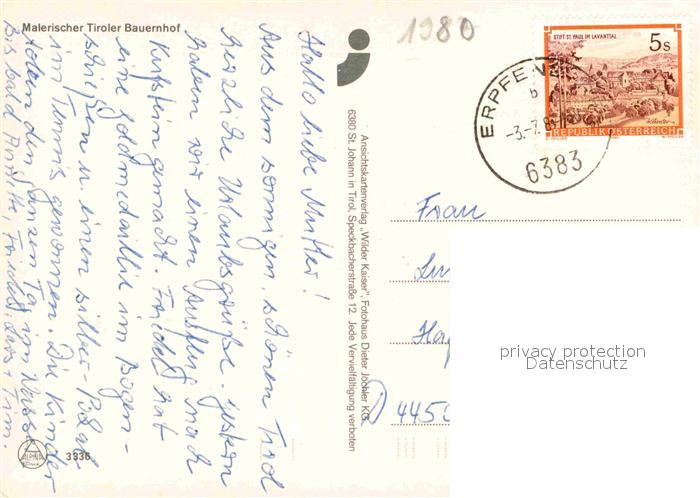 Malerischer Tiroler Bauernhof
1980
STIFT ST. PAUL IM LAVANTTAL
5s
REPUBLIK ÖSTERREICH
ERPFEN
b
-3.-7.8
6383
Hallo liebe Mutter!
Aus dem sonnigen, schönen Tirol
herzliche Urlaubsgrüße. Gestern
haben wir einen Ausflug nach
Kufstein gemacht. Friedel hat
eine Goldmedaille im Bogen-
schießen u. einen Silber-Pokal
im Tennis gewonnen. Die Kinder
den ganzen Tag im Wasser.
Bis bald
Ansichtskartenverlag „Wilder Kaiser", Fotohaus Dieter Jöchler KG
6380 St. Johann in Tirol, Speckbacherstraße 12. Jede Vervielfältigung verboten
Frau
D 445
privacy protection
Datenschutz
ALPINA
3336